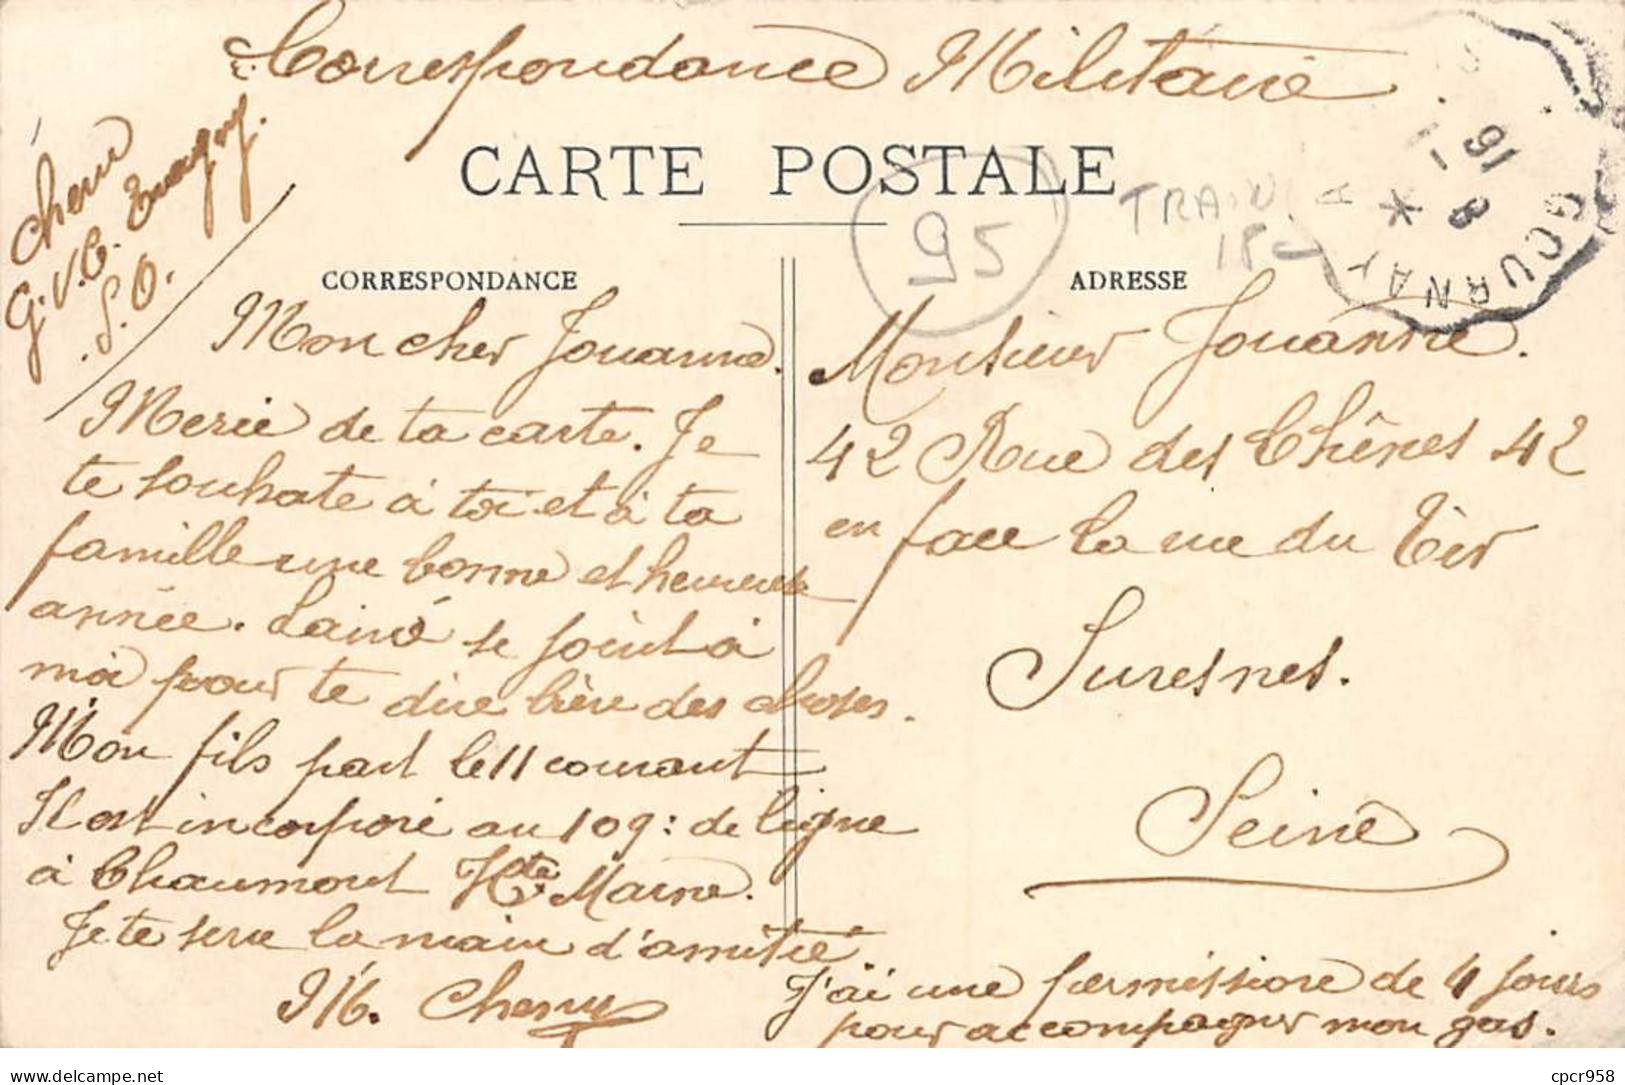 Correspondance Militaire
Cheru
G.V.C. Eragny.
S.O.
CARTE POSTALE
95
TRAIN
18-
GOURNAY
16
8
CORRESPONDANCE
ADRESSE
Mon cher Jouanne.
Merci de ta carte. Je
te souhate à toi et à ta
famille une bonne et heureuse
année. Lainé se joint à
moi pour te dire bien des choses.
Mon fils part le 11 courant
Il est incorporé au 109: de ligne
à Chaumont Hte Marne.
Je te serre la main d'amitié
M. Cheru
J'ai une permissione de 4 jours
pour accompagner mon gas.
Monsieur Jouanne.
42 Rue des Chênes 42
en face la rue du Tir
Suresnes.
Seine
cpcr958